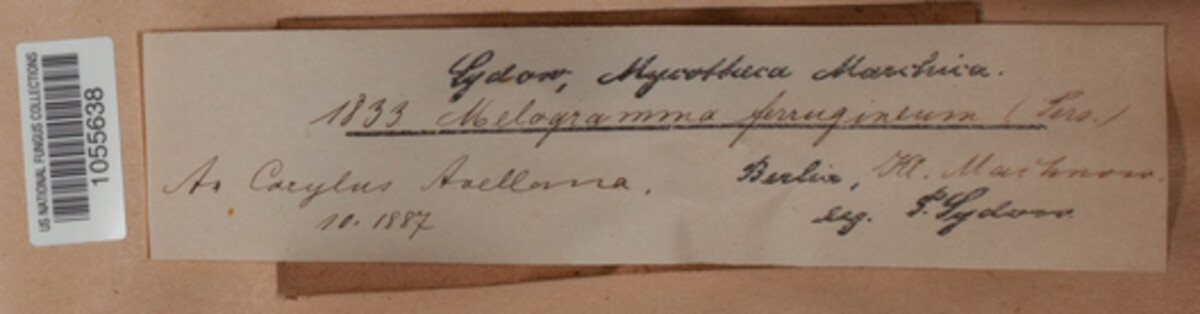 US NATIONAL FUNGUS COLLECTIONS
1055638
Sydow, Mycotheca Marchica.
1833 Melogramma ferrugineum (Pers.)
An Corylus Avellana.
10. 1887
Berlin, Kl. Machnow.
leg. P. Sydow.